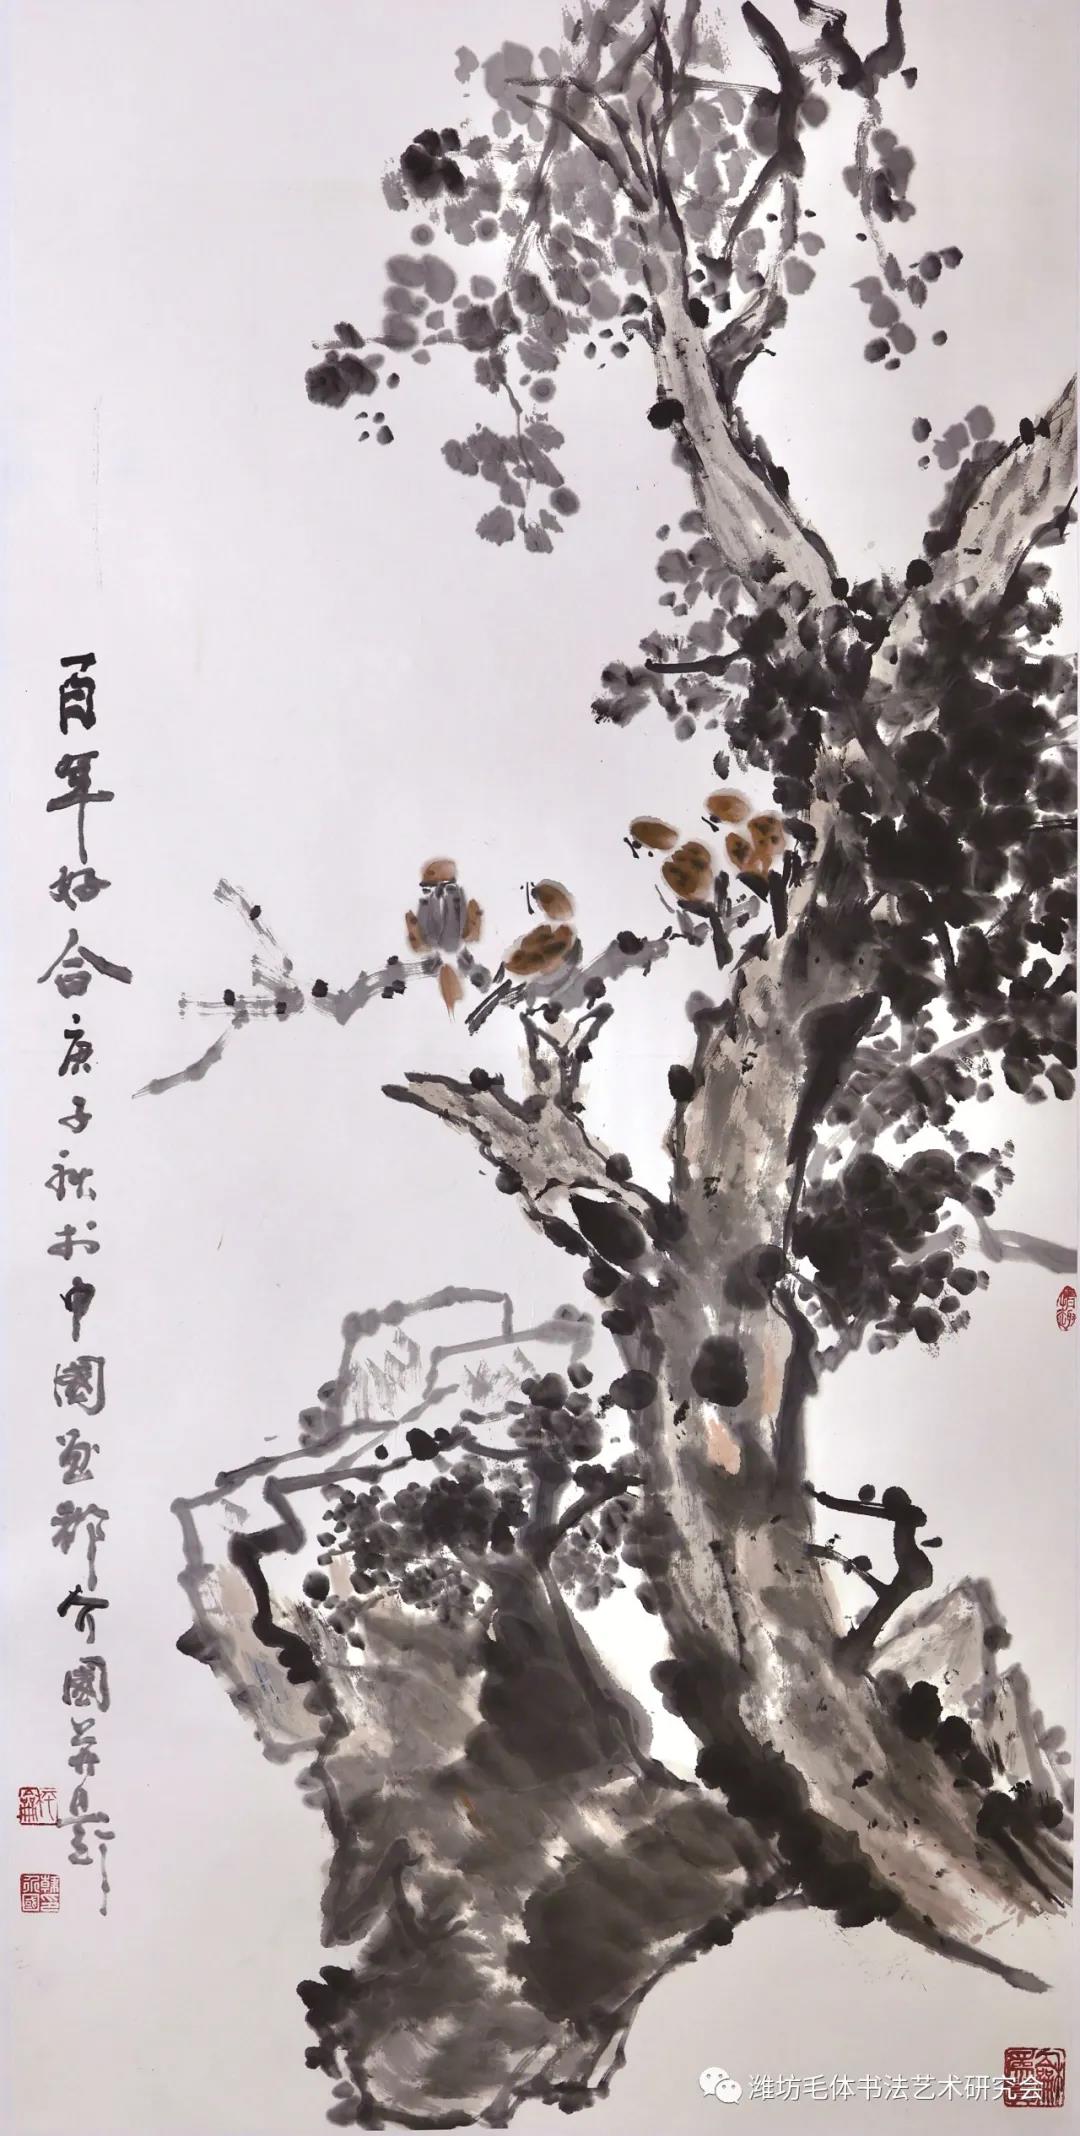 百年好合庚子秋於中國画都介國并題
潍坊毛体书法艺术研究会